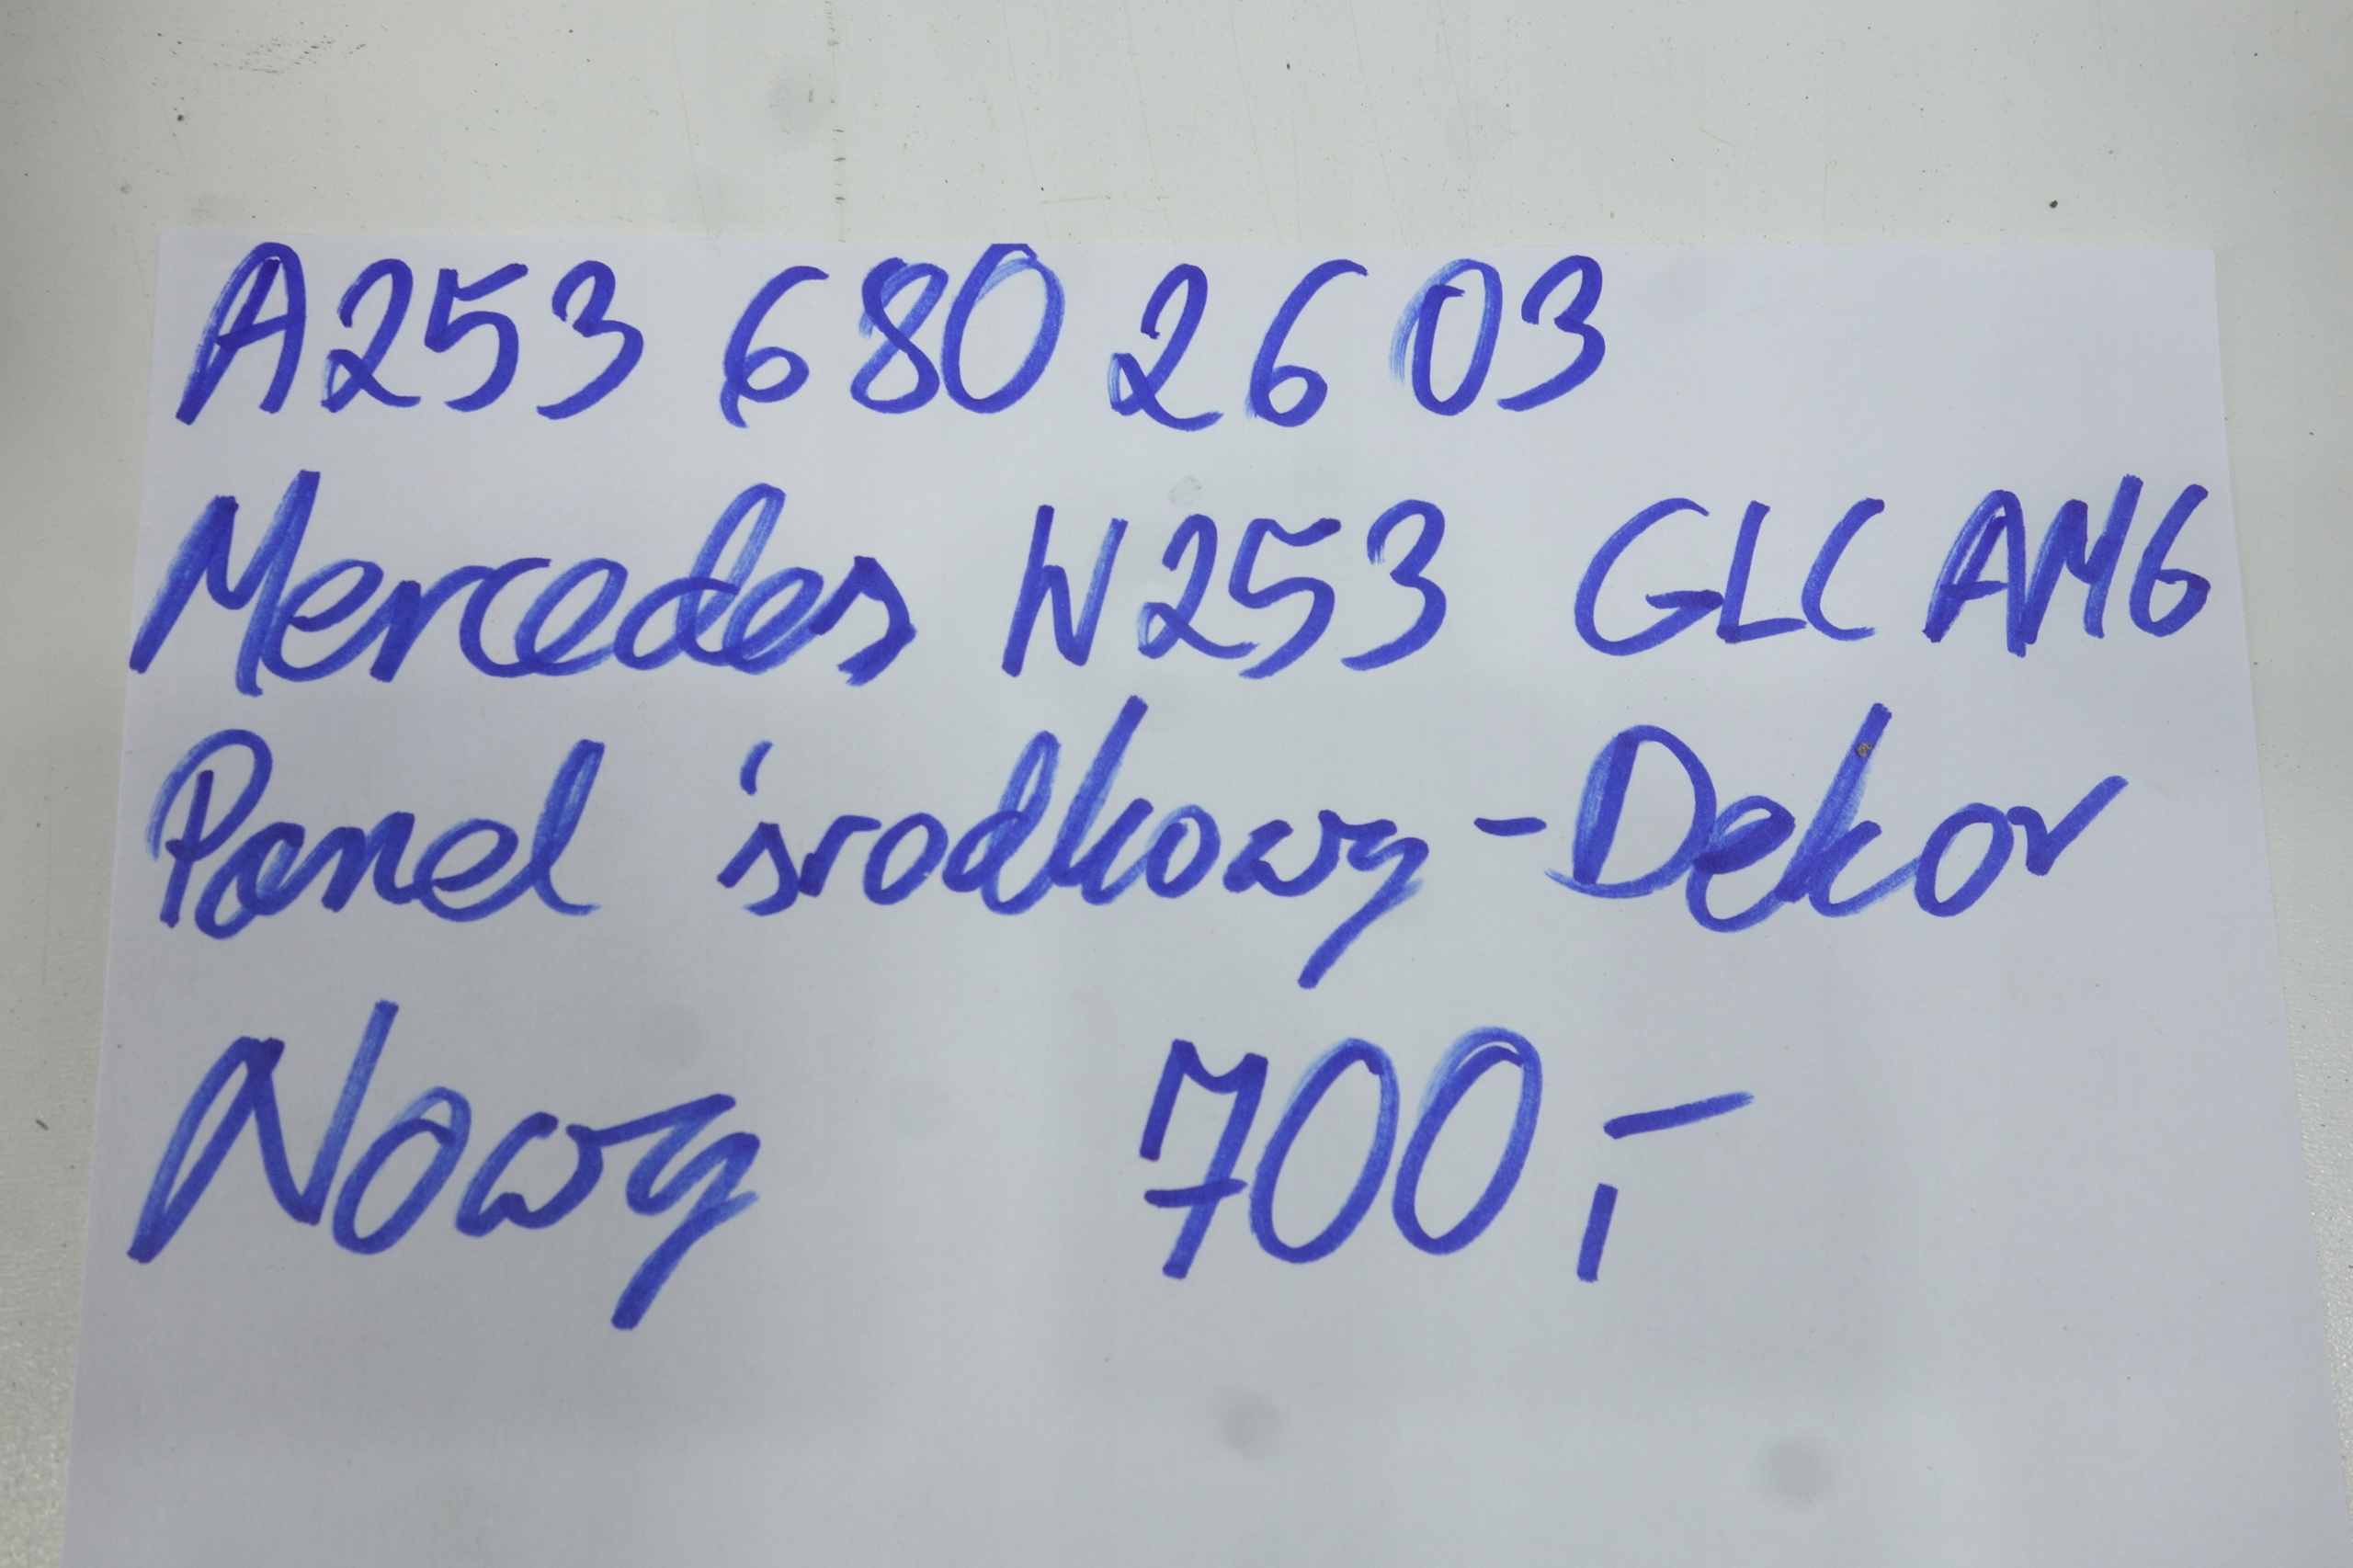 A253 680 26 03
Mercedes W253 GLC AMG
Panel środkowy - Dekor
Nowy 700,-